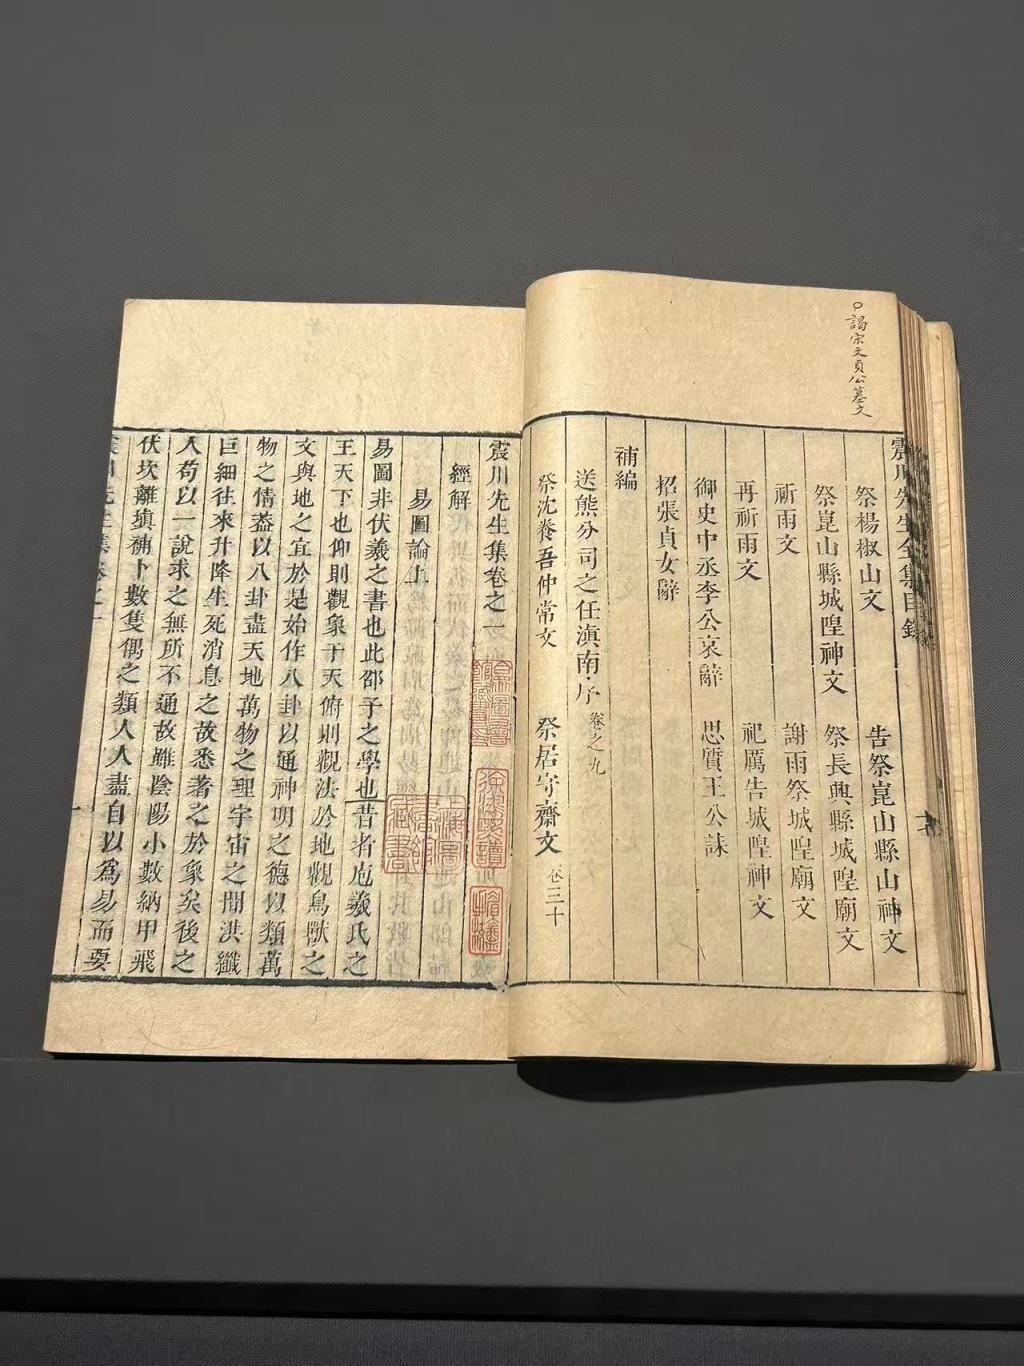 謁宋文貞公墓文
震川先生全集目錄
祭楊椒山文 告祭崑山縣山神文
祭崑山縣城隍神文 祭長興縣城隍廟文
祈雨文 謝雨祭城隍廟文
再祈雨文 祀厲告城隍神文
御史中丞李公哀辭 思質王公誄
招張貞女辭
補編
送熊分司之任滇南序 卷之九
祭沈養吾仲常文 祭居守齋文 卷三十
震川先生集卷之一
經解
易圖論上
易圖非伏羲之書也此邵子之學也昔者庖羲氏之
王天下也仰則觀象于天俯則觀法於地觀鳥獸之
文與地之宜於是始作八卦以通神明之德以類萬
物之情蓋以八卦盡天地萬物之理宇宙之間洪纖
巨細往來升降生死消息之故悉著之於象矣後之
人苟以一說求之無所不通故雖陰陽小數納甲飛
伏坎離塡補卜數隻偶之類人人盡自以爲易而要
震川先生集卷之一
上海圖書館藏書